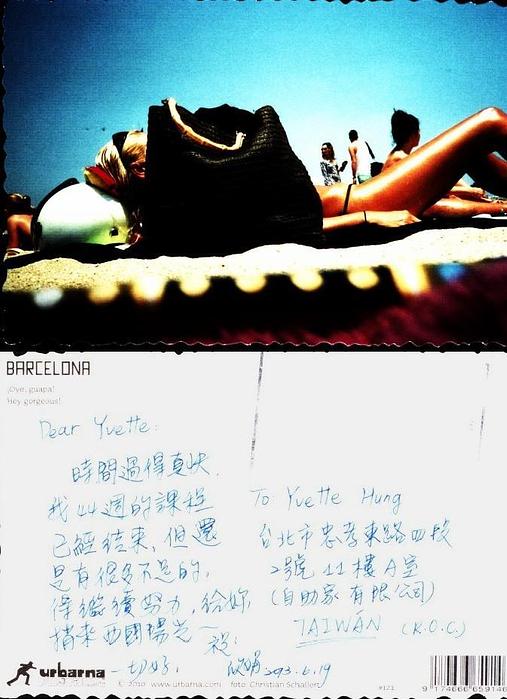 BARCELONA
¡Oye, guapa!
Hey gorgeous!
Dear Yvette:
時間過得真快.
我44週的課程
已經結束,但還
是有很多不足的,
得繼續努力,給妳
捎來西國陽光~
祝:
一切好.
2013.6.19
To Yvette Hung
台北市忠孝東路四段
2號 11樓A室
(自助家有限公司)
TAIWAN (R.O.C.)
urbarna
© 2010 www.urbarna.com foto: Christian Schallert
#121
9 174666 65914